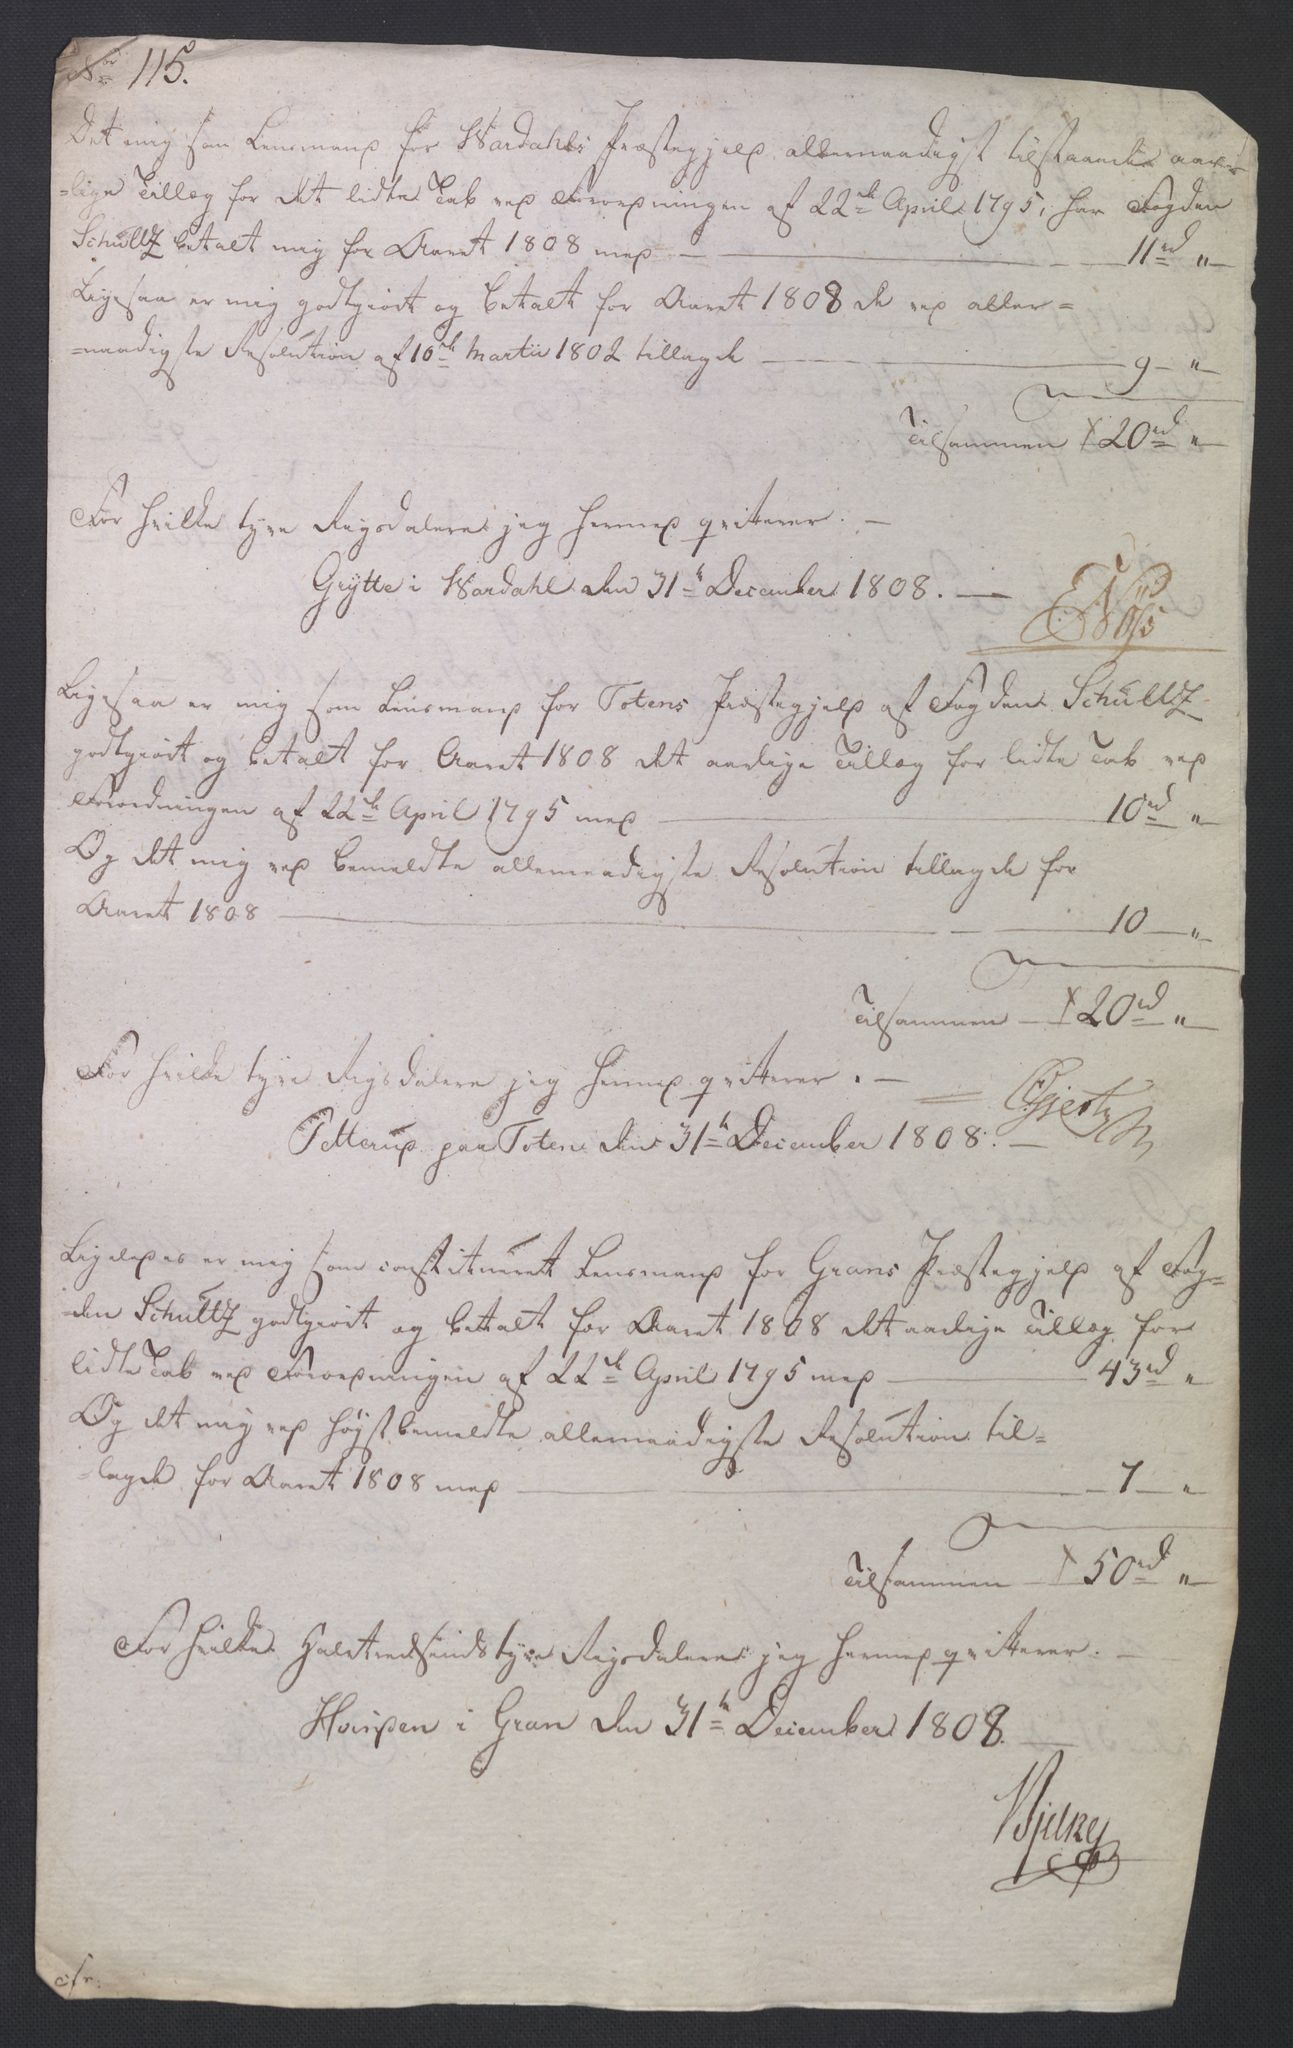 No 115.
Det mig som Lensmand for Wardahls Præstegjeld allernaadigst tilstaaende aar-
-lige Tillæg for det lidte Tab ved Forordningen af 22de April 1795, har Fogden
Schultz betalt mig for Aaret 1808 med — 11 rd "
Ligesaa er mig godtgiort og betalt for Aaret 1808 de ved aller-
-naadigste Resolution af 10de Martii 1802 tillagde — 9 — "
Tilsammen 20 rd "
For hvilke tyve Rigsdaler jeg hermed qvitterer. —
Grytte i Wardahl den 31te December 1808. —
Ligesaa er mig som Lensmand for Totens Præstegjeld af Fogden Schultz
godtgiort og betalt for Aaret 1808 det aarlige Tillæg for lidte Tab ved
Forordningen af 22de April 1795 med — 10 rd "
Og det mig ved bemeldte allernaadigste Resolution tillagde for
Aaret 1808 — 10 — "
Tilsammen — 20 rd "
For hvilke tyve Rigsdalere jeg hermed qvitterer. —
Petterud paa Toten den 31te December 1808. —
Ligeledes er mig som constitueret Lensmand for Grans Præstegjeld af Fog-
-den Schultz godtgiort og betalt for Aaret 1808 det aarlige Tillæg for
lidte Tab ved Forordningen af 22de April 1795 med — 43 rd "
Og det mig ved høystbemeldte allernaadigste Resolution til-
-lagde for Aaret 1808 med — 7 — "
Tilsammen — 50 rd "
For hvilke Halvtredsindstyve Rigsdalere jeg hermed qvitterer. —
i Gran den 31te December 1808. —